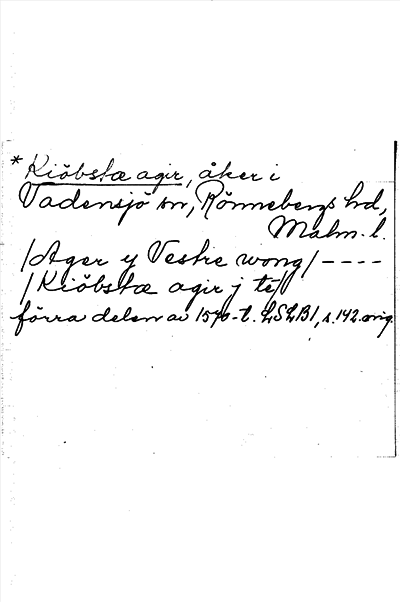 *Kiöbstæ agir, åker i
Vadensjö sn, Rönnebergs hd,
Malm. l.
/Ager y Vestre wong/ ----
/Kiöbstæ agir j té/
förra delen av 1570-t. LSLB1, s. 142. orig.